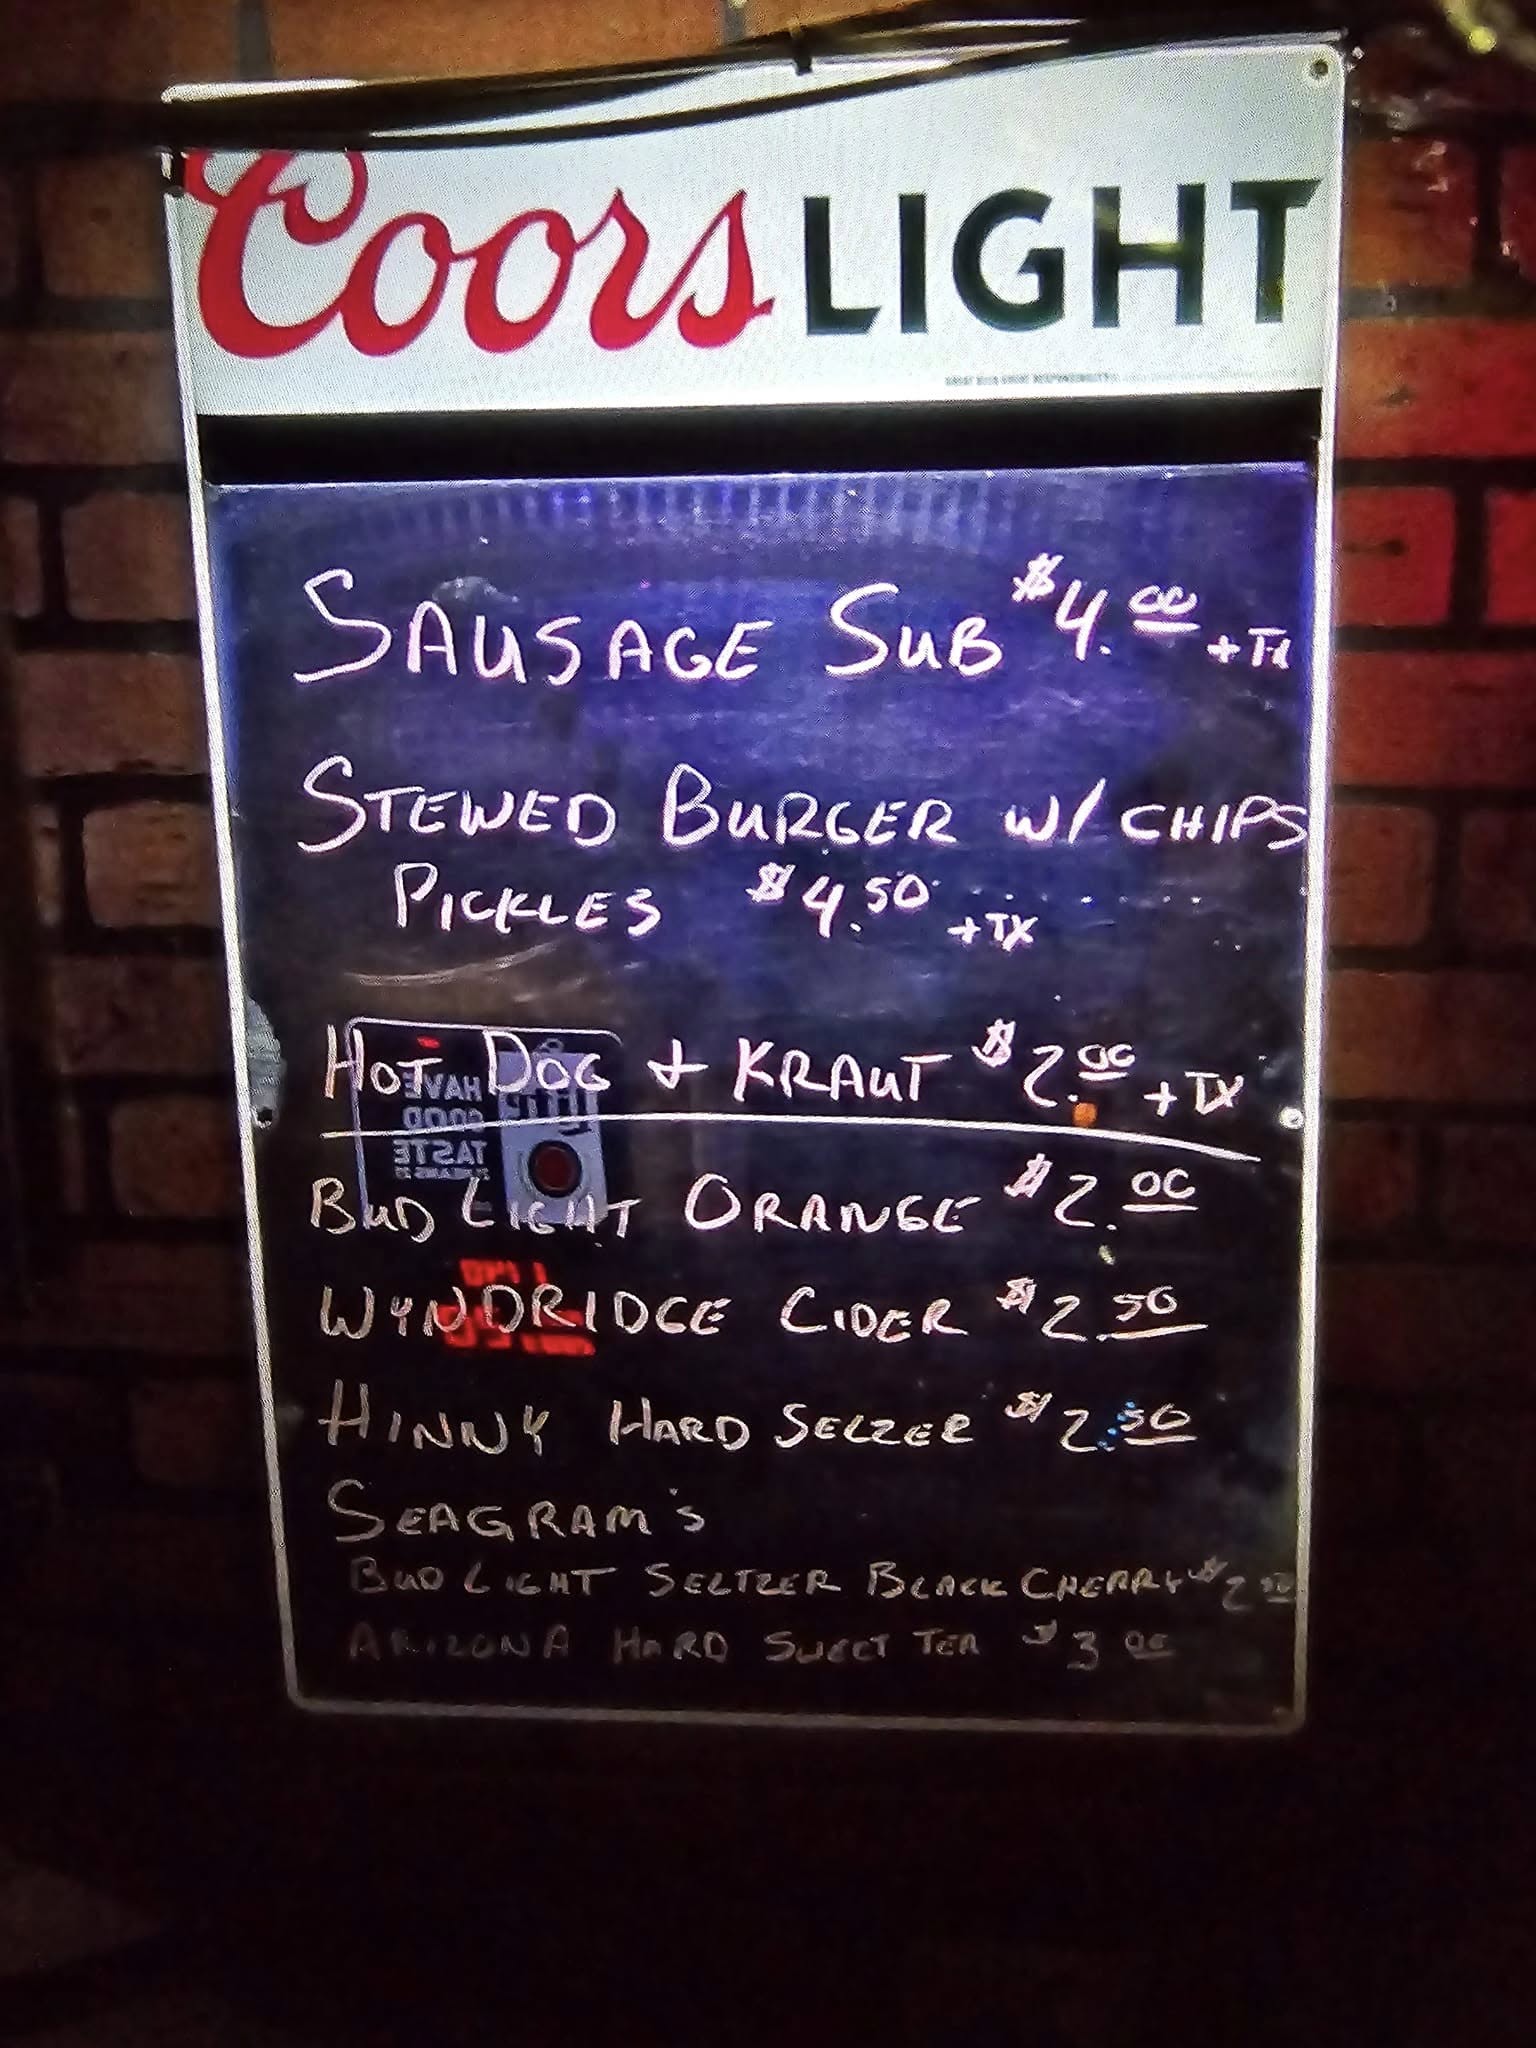 Coors LIGHT
SAUSAGE SUB $4.00 + TX
STEWED BURGER W/ CHIPS
PICKLES $4.50 + TX
HOT DOG & KRAUT $2.00 + TX
HAVE
GOOD
TASTE
BUD LIGHT ORANGE $2.00
WYNDRIDGE CIDER $2.50
HINNY HARD SELZER $2.50
SEAGRAM'S
BUD LIGHT SELTZER BLACK CHERRY $2
ARIZONA HARD SWEET TEA $3.00